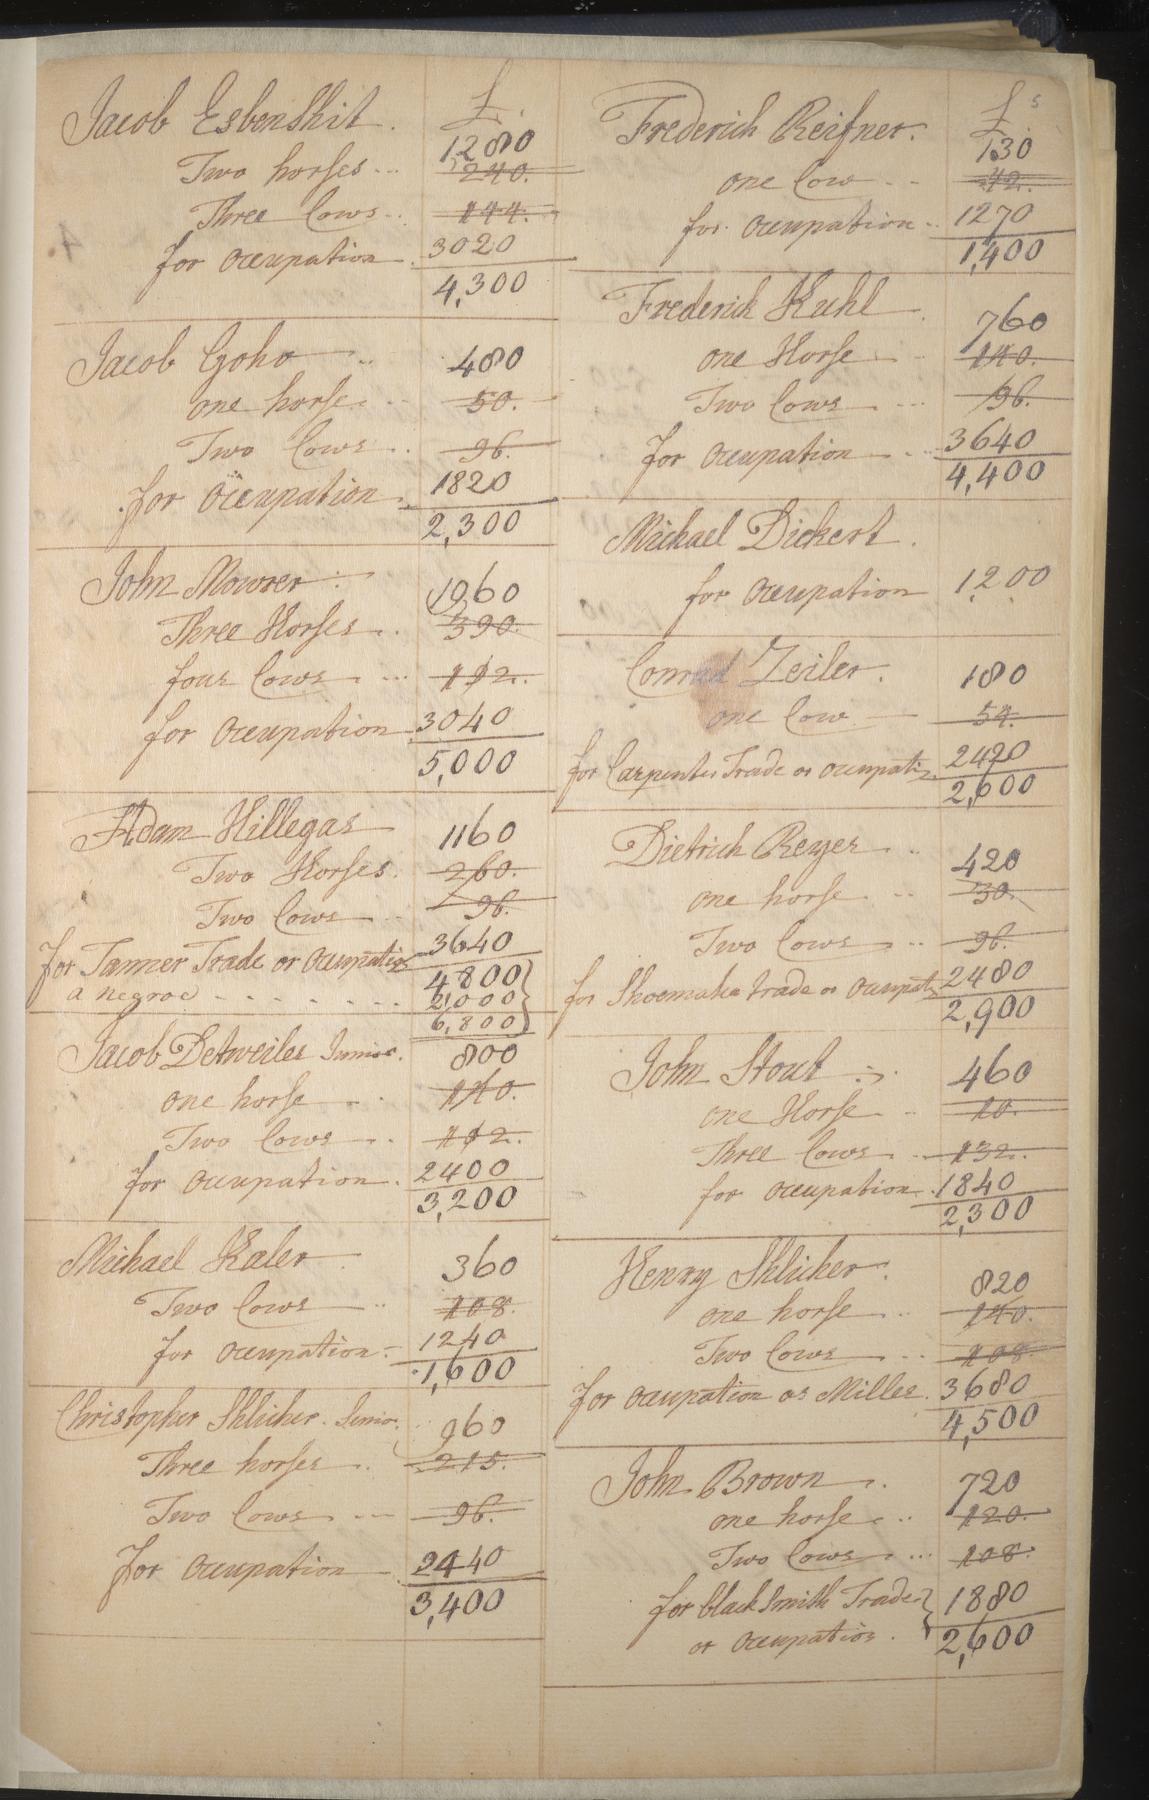 £
Jacob Esbenshit . 1280
Two horses .. 240.
Three Cows .. 144.
for Occupation . 3020
4,300
Jacob Goho .. 480
one horse .. 50.
Two Cows . 96.
for Occupation . 1820
2,300
John Mowrer : 1960
Three Horses .. 390.
four Cows ... 192.
for Occupation 3040
5,000
Adam Hillegas 1160
Two Horses . 260.
Two Cows .. 96.
for Tanner Trade or Occupation 3640
4800
a negroe - - - - - - 2,000
6,800
Jacob Detweiler Junior. 800
one horse .. 140.
Two Cows .. 102.
for Occupation . 2400
3,200
Michael Kaler . 360
Two Cows .. 108.
for Occupation . 1240
1,600
Christopher Shlicher Senior. 960
Three horses .. 215.
Two Cows .. 96.
for Occupation . 2440
3,400
£ s
Frederich Reifner . 130
one Cow .. 42.
for Occupation .. 1270
1,400
Frederick Kuhl . 760
one Horse .. 140.
Two Cows ... 96.
for Occupation .. 3640
4,400
Michael Dickert .
for Occupation 1200
Conrad Zeiler . 180
one Cow 54.
for Carpenter Trade or occupatn. 2420
2,600
Dietrich Reyer .. 420
one horse .. 30.
Two Cows .. 96.
for Shoemaker trade or Occupatn 2480
2,900
John Stout .. 460
one Horse .. 10.
Three Cows .. 132.
for Occupation . 1840
2,300
Henry Shlicher . 820
one horse .. 140.
Two Cows .. 108
for Occupation as Miller . 3680
4,500
John Brown . 720
one horse .. 120.
Two Cows ... 108.
for black Smith Trade 1880
or Occupation . 2,600